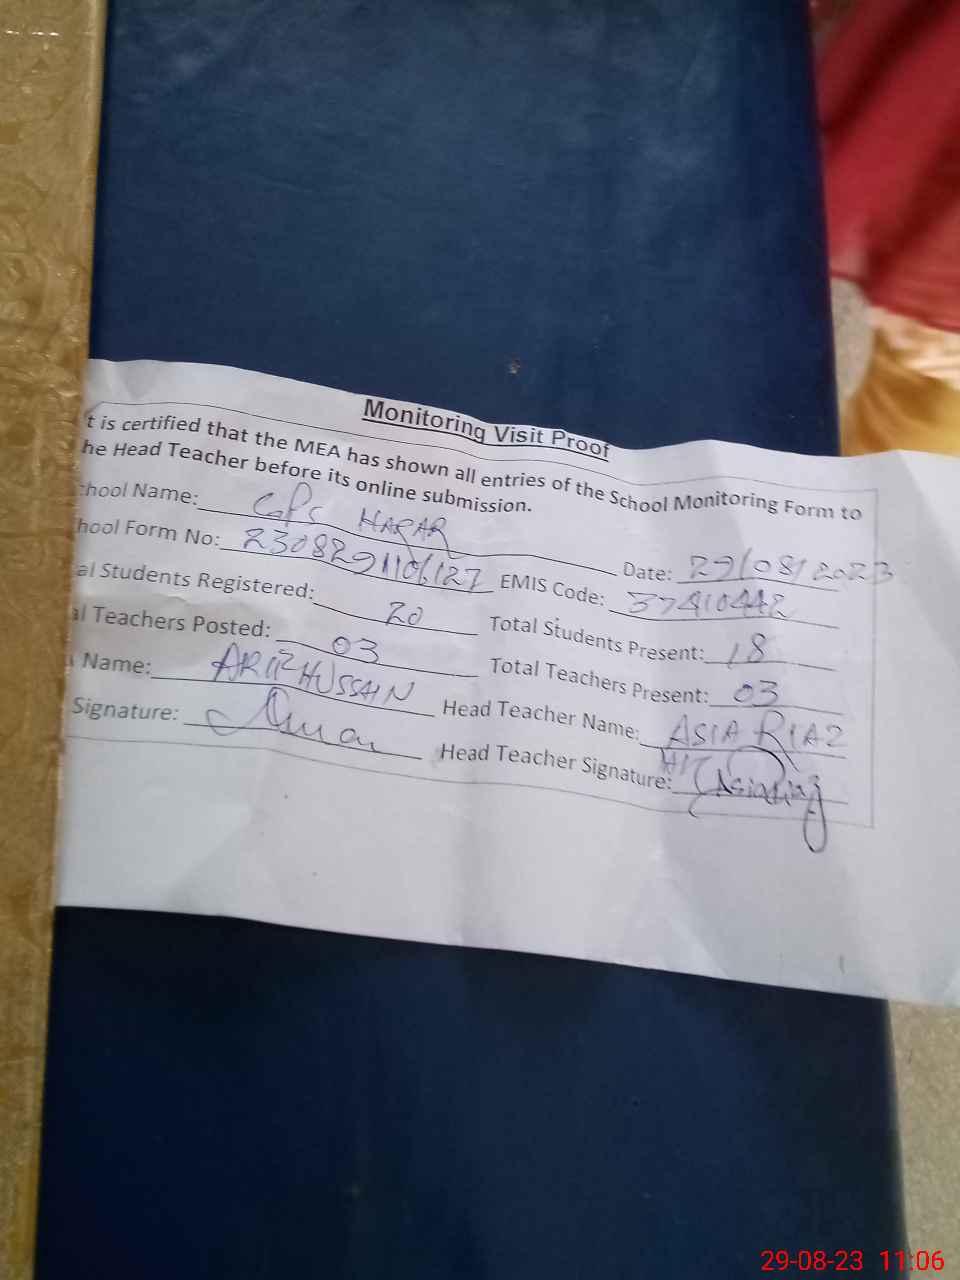 Monitoring Visit Proof
t is certified that the MEA has shown all entries of the School Monitoring Form to
he Head Teacher before its online submission.
chool Name: GPS HARAR Date: 29/08/2023
hool Form No: 2308291106127 EMIS Code: 37410442
al Students Registered: 20 Total Students Present: 18
al Teachers Posted: 03 Total Teachers Present: 03
Name: HUSSAIN Head Teacher Name: ASIA RIAZ
Signature: Head Teacher Signature: Asia Riaz
29-08-23 11:06